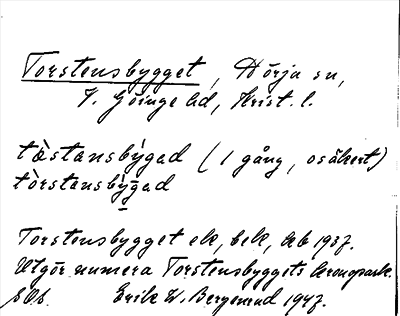 Torstensbygget, Hörja sn,
V. Göinge hd, Krist. l.
tòstansby̆gad (1 gång, osäkert)
tòrstansby̆gad
Torstensbygget ek, bek, 1937.
Utgör numera Torstensbyggets kronopark.
Erik W. Bergenrud 1947.